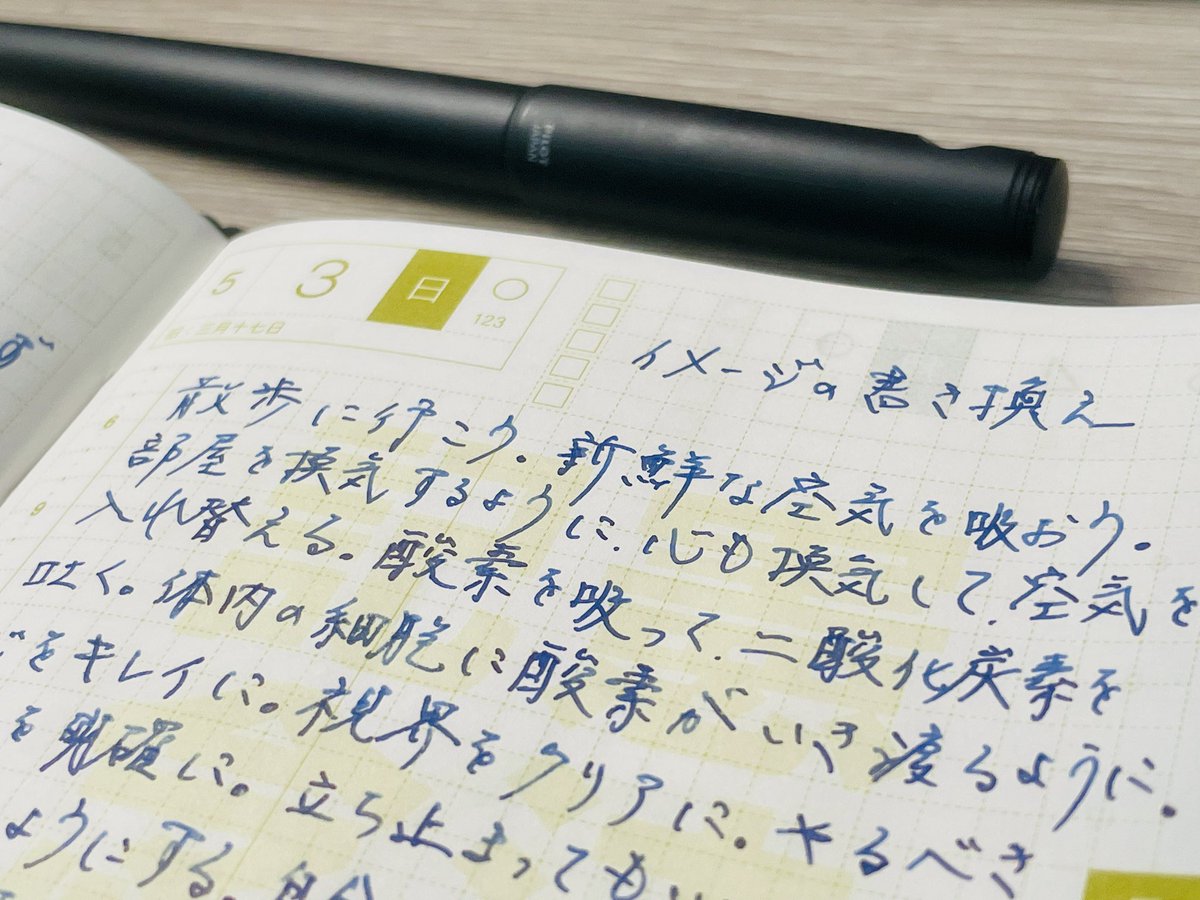 5 3 日 ○
123
旧・三月十七日
イメージの書き換え
6
散歩に行こう。新鮮な空気を吸おう。
部屋を換気するように、心も換気して、空気を
9
入れ替える。酸素を吸って、二酸化炭素を
吐く。体内の細胞に酸素がいき渡るように。
をキレイに。視界をクリアに。やるべき
を明確に。立ち止まっても
ようにする。自分
ず